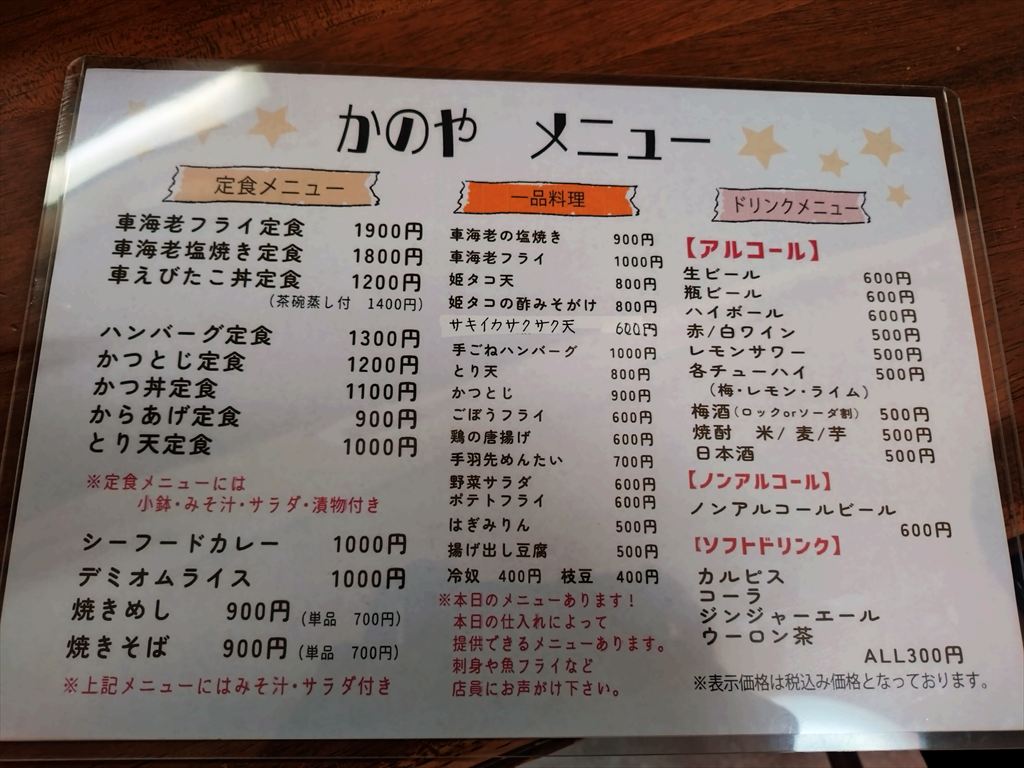 かのや メニュー
定食メニュー
車海老フライ定食 1900円
車海老塩焼き定食 1800円
車えびたこ丼定食 1200円
(茶碗蒸し付 1400円)
ハンバーグ定食 1300円
かつとじ定食 1200円
かつ丼定食 1100円
からあげ定食 900円
とり天定食 1000円
※定食メニューには
小鉢・みそ汁・サラダ・漬物付き
シーフードカレー 1000円
デミオムライス 1000円
焼きめし 900円 (単品 700円)
焼きそば 900円 (単品 700円)
※上記メニューにはみそ汁・サラダ付き
一品料理
車海老の塩焼き 900円
車海老フライ 1000円
姫タコ天 800円
姫タコの酢みそがけ 800円
サキイカサクサク天 600円
手ごねハンバーグ 1000円
とり天 800円
かつとじ 900円
ごぼうフライ 600円
鶏の唐揚げ 600円
手羽先めんたい 700円
野菜サラダ 600円
ポテトフライ 600円
はぎみりん 500円
揚げ出し豆腐 500円
冷奴 400円 枝豆 400円
※本日のメニューあります!
本日の仕入れによって
提供できるメニューあります。
刺身や魚フライなど
店員にお声がけ下さい。
ドリンクメニュー
【アルコール】
生ビール 600円
瓶ビール 600円
ハイボール 600円
赤/白ワイン 500円
レモンサワー 500円
各チューハイ 500円
(梅・レモン・ライム)
梅酒(ロックorソーダ割) 500円
焼酎 米/麦/芋 500円
日本酒 500円
【ノンアルコール】
ノンアルコールビール
600円
【ソフトドリンク】
カルピス
コーラ
ジンジャーエール
ウーロン茶
ALL300円
※表示価格は税込み価格となっております。